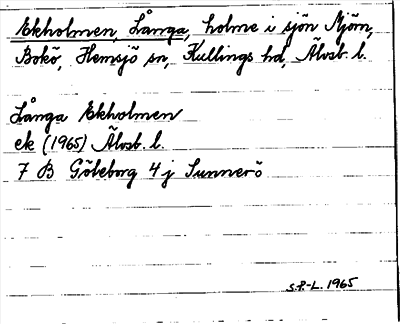 Ekholmen, Långa, holme i sjön Mjörn,
Bokö, Hemsjö sn, Kullings hd, Älvsb. l.
Långa Ekholmen
ek (1965) Älvsb. l.
7 B Göteborg 4 j Sunnerö
S.P-L. 1965